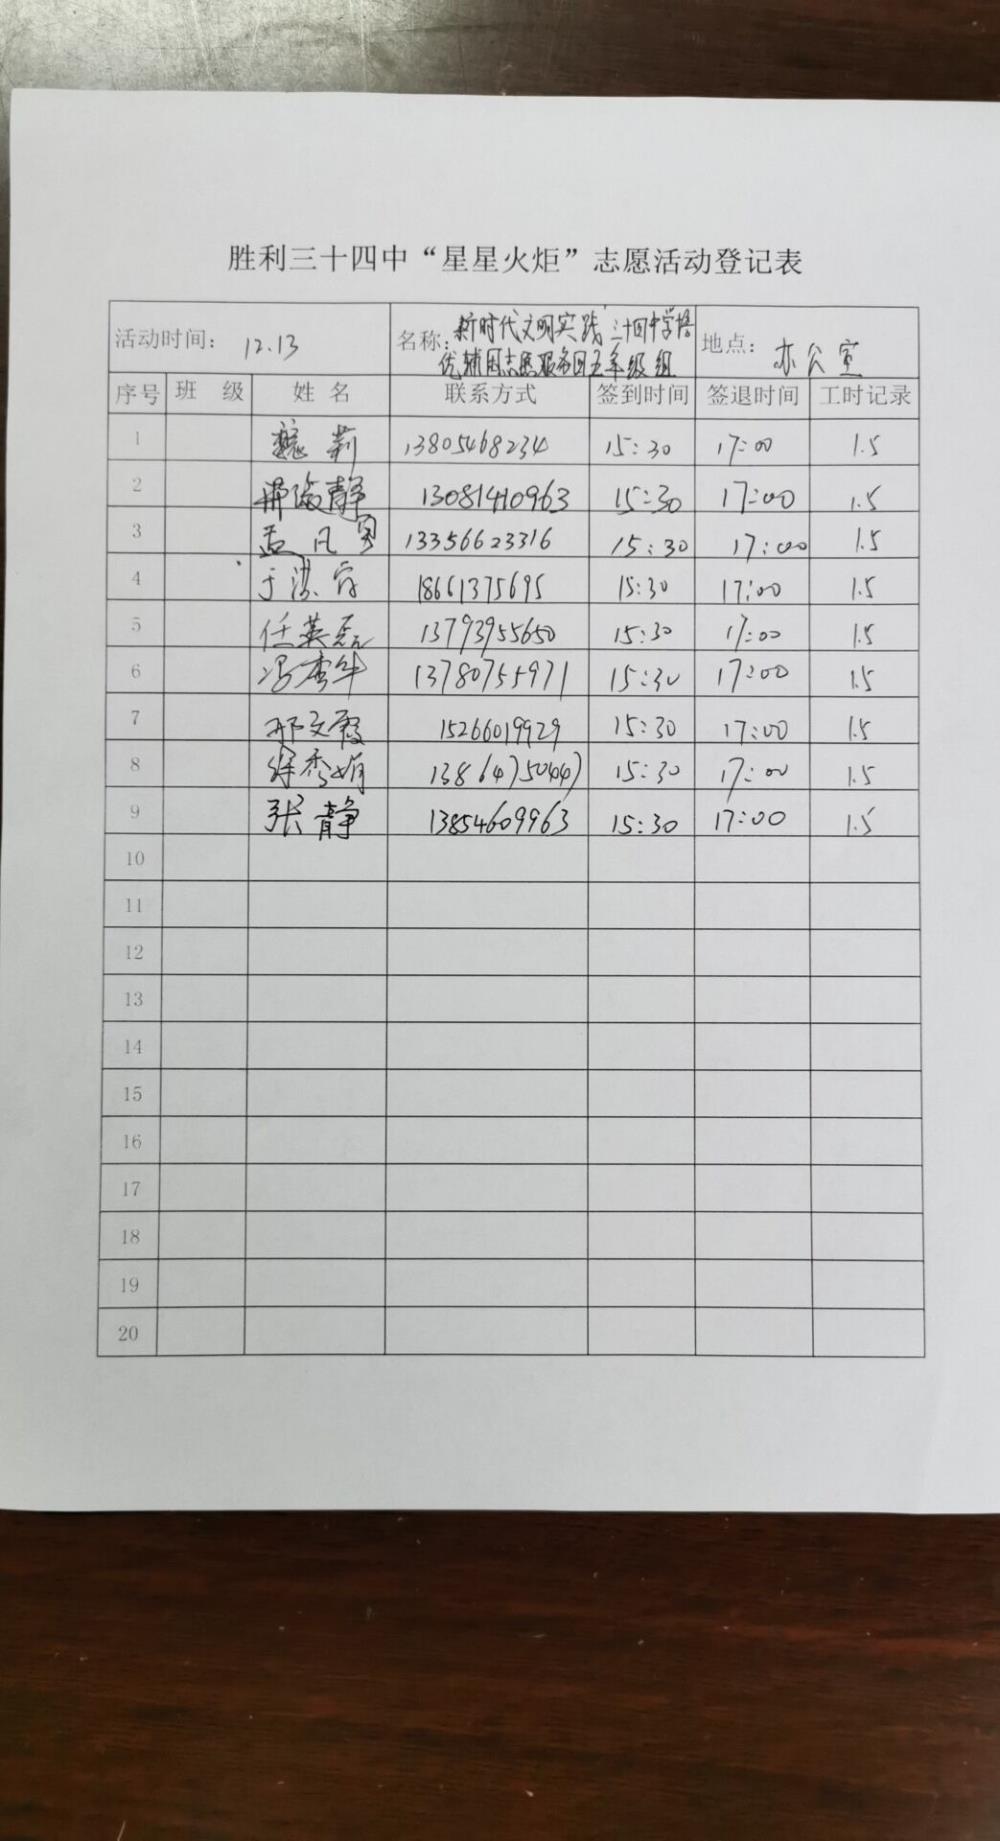 胜利三十四中“星星火炬”志愿活动登记表
活动时间： 12.13 名称：新时代文明实践 三十四中学培优辅困志愿服务团五年级组 地点： 办公室
序号 班 级 姓 名 联系方式 签到时间 签退时间 工时记录
1 魏莉 13805468234 15:30 17:00 1.5
2 静 13081410963 15:30 17:00 1.5
3 孟凡 13356623316 15:30 17:00 1.5
4 于 18661375695 15:30 17:00 1.5
5 任英磊 13793955650 15:30 17:00 1.5
6 冯秀华 13780755971 15:30 17:00 1.5
7 邢文霞 15266019929 15:30 17:00 1.5
8 徐秀娟 13864750447 15:30 17:00 1.5
9 张静 13854609963 15:30 17:00 1.5
10
11
12
13
14
15
16
17
18
19
20